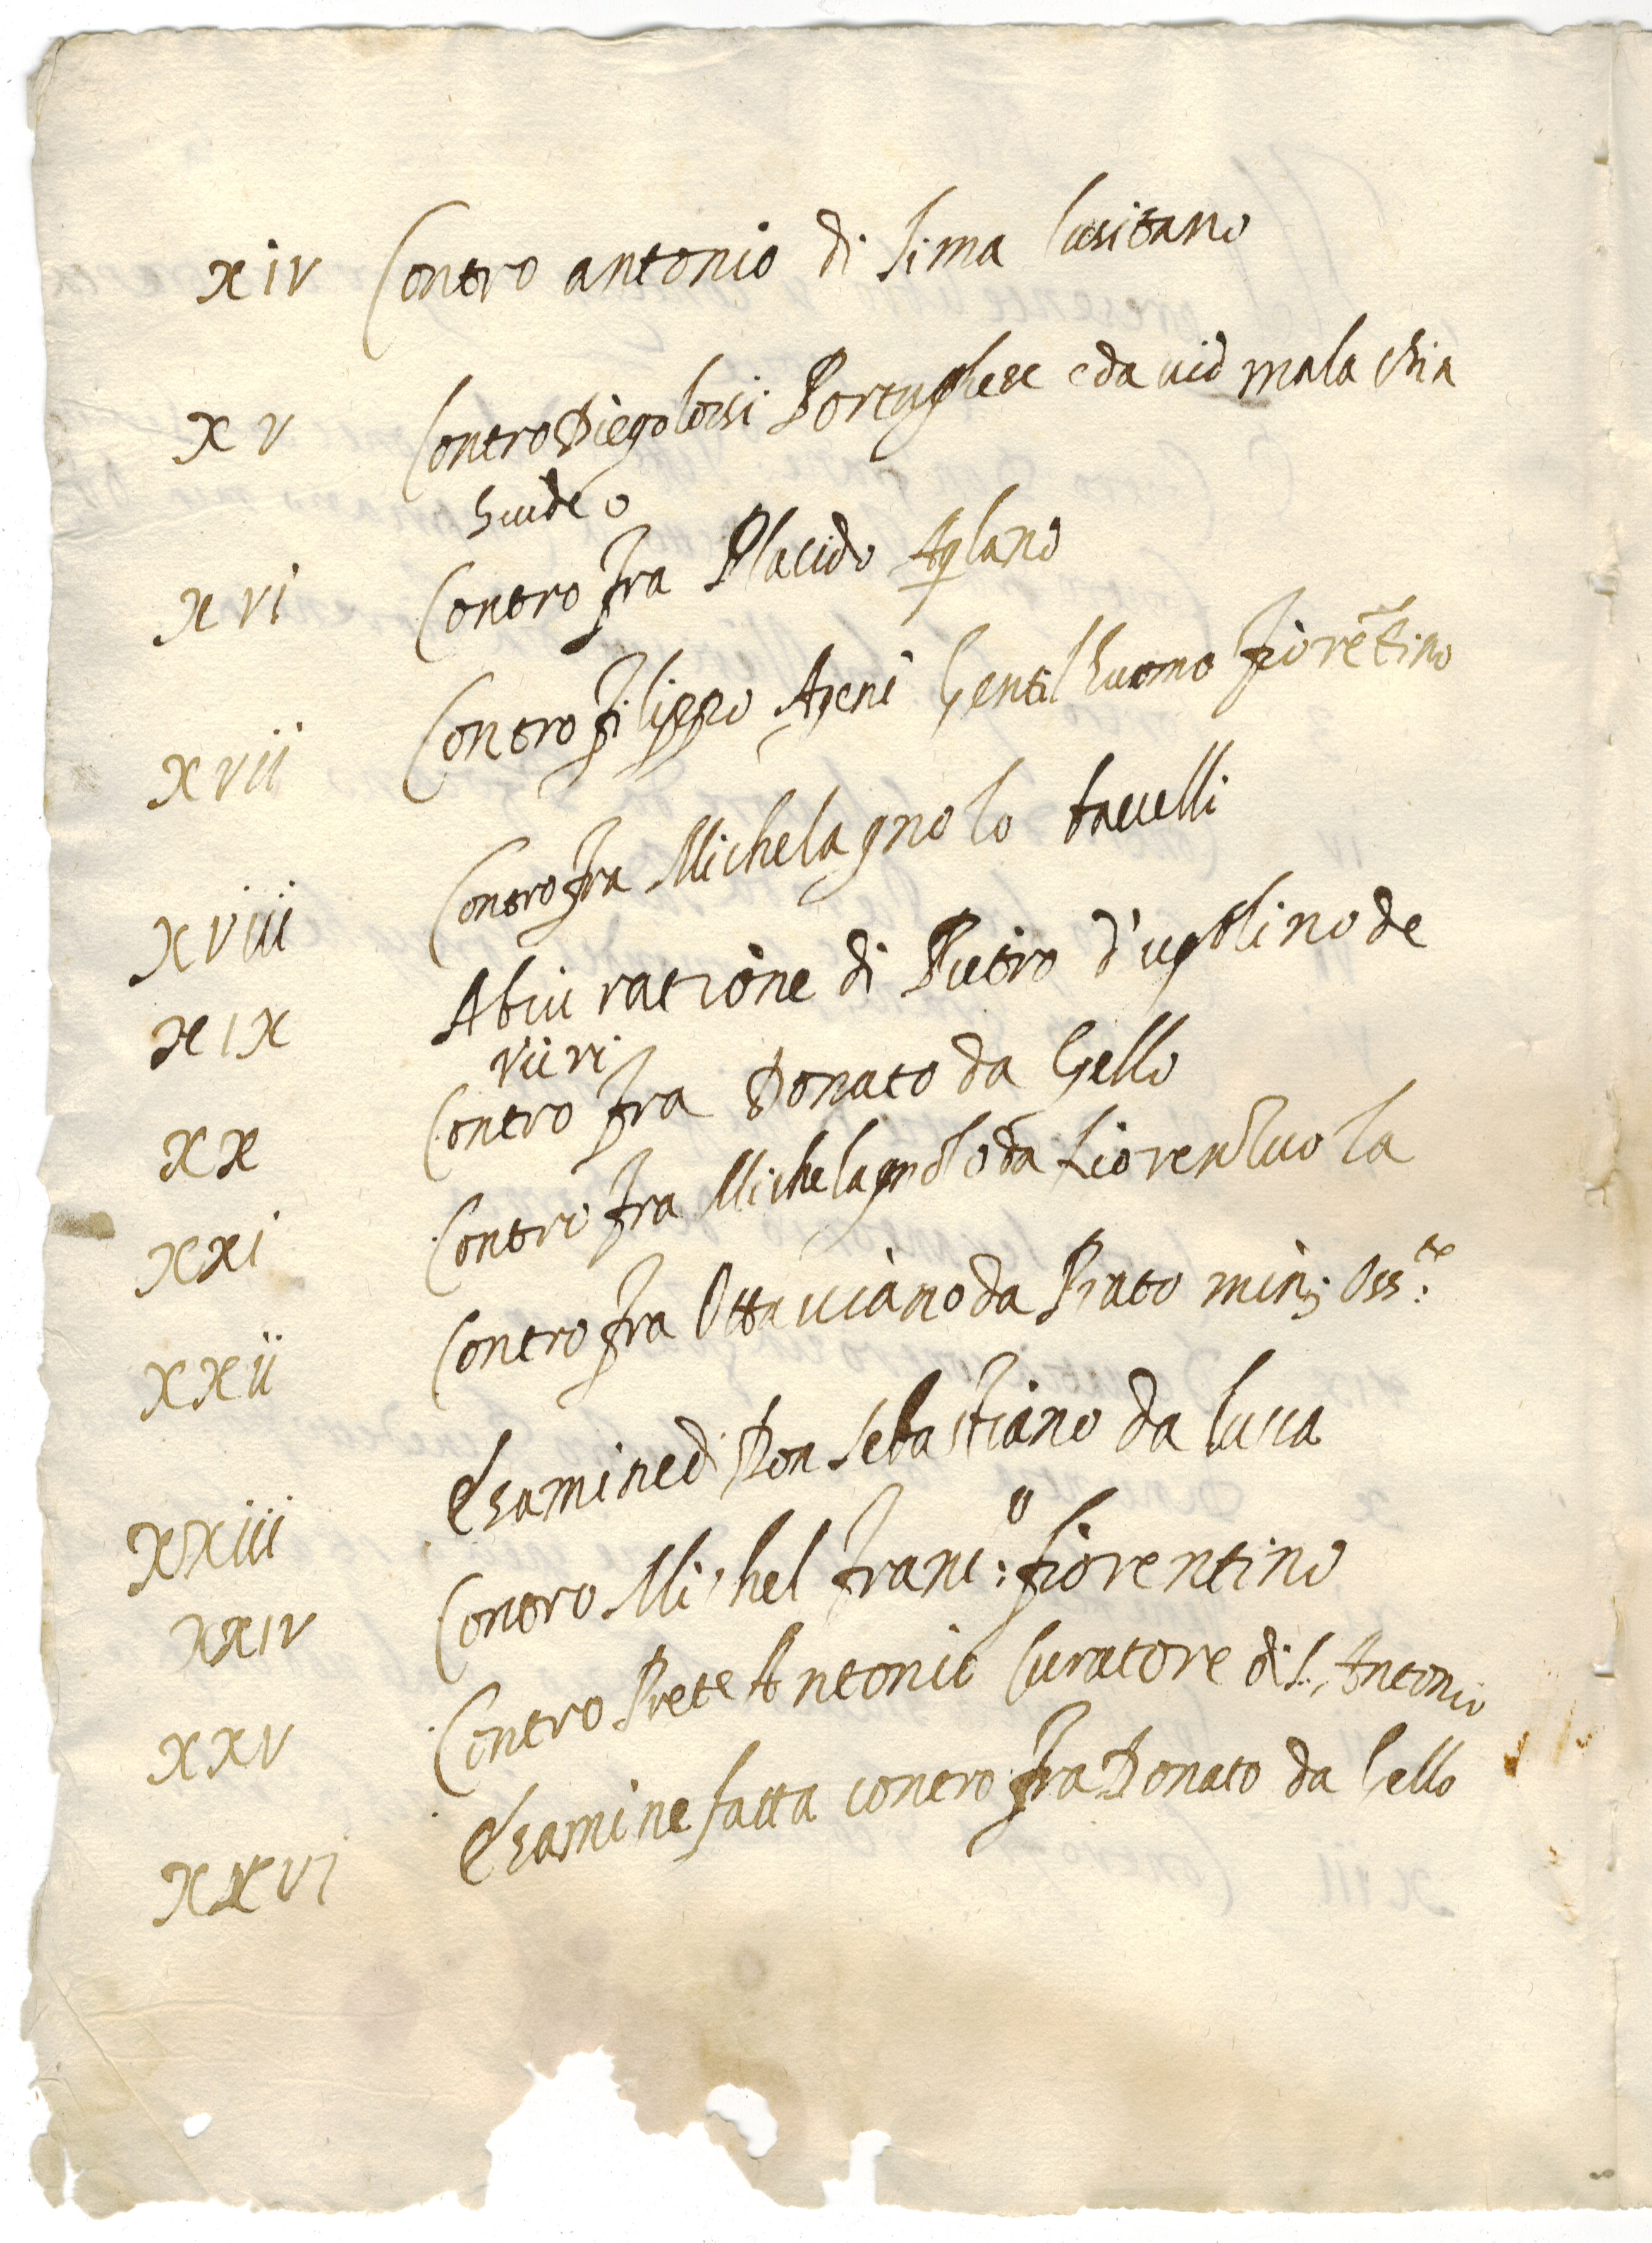 xiv Contro antonio di lima lusitano
xv Contro Diego loisi Portughese e david mala chia
hudeo
xvi Contro fra Placido Aglano
xvii Contro filippo Ageni Gentilhuomo fiorẽtino
xviii Contro fra Michelagnolo tavelli
xix Abiuratione di Pietro d'ugolino de
viivi
xx Contro fra Donato da Gello
xxi Contro fra Michelagnolo da fiorenzuola
xxii Contro fra Ottaviano da Prato min; Oss:te
xxiii Esamine di Don Sebastiano da lucca
xxiv Contro Michel franc:o fiorentino
xxv Contro Prete Antonio Curatore di S. Antonio
xxvi Esamine fatta contro fra Donato da Gello